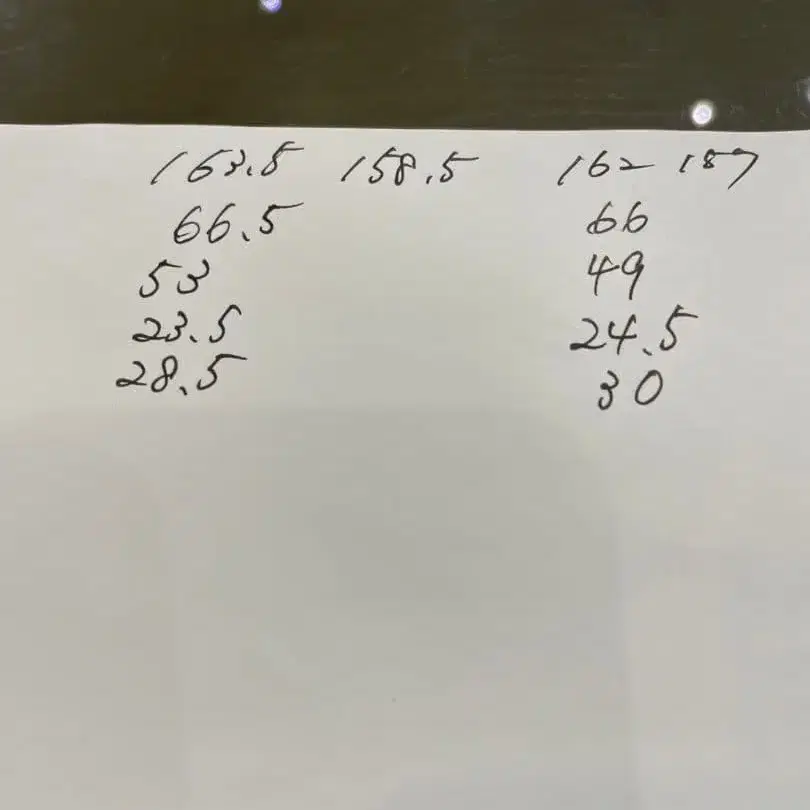 163.5 158.5 162 157
66.5 66
53 49
23.5 24.5
28.5 30